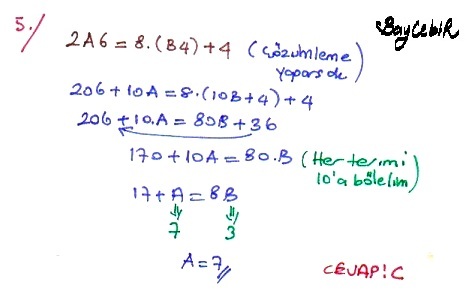 5./
BayCebiR
2A6 = 8.(B4)+4 (Çözümleme yaparsak)
206+10A = 8.(10B+4)+4
206+10A = 80B+36
170+10A = 80.B (Her terimi 10'a bölelim)
17+A = 8B
7 3
A=7//
CEVAP: C